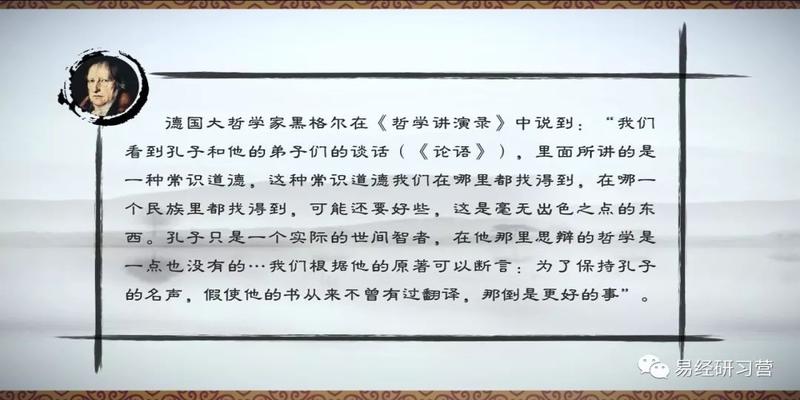 德国大哲学家黑格尔在《哲学讲演录》中说到：“我们
看到孔子和他的弟子们的谈话（《论语》），里面所讲的是
一种常识道德，这种常识道德我们在哪里都找得到，在哪一
个民族里都找得到，可能还要好些，这是毫无出色之点的东
西。孔子只是一个实际的世间智者，在他那里思辩的哲学是
一点也没有的…我们根据他的原著可以断言：为了保持孔子
的名声，假使他的书从来不曾有过翻译，那倒是更好的事”。
易经研习营